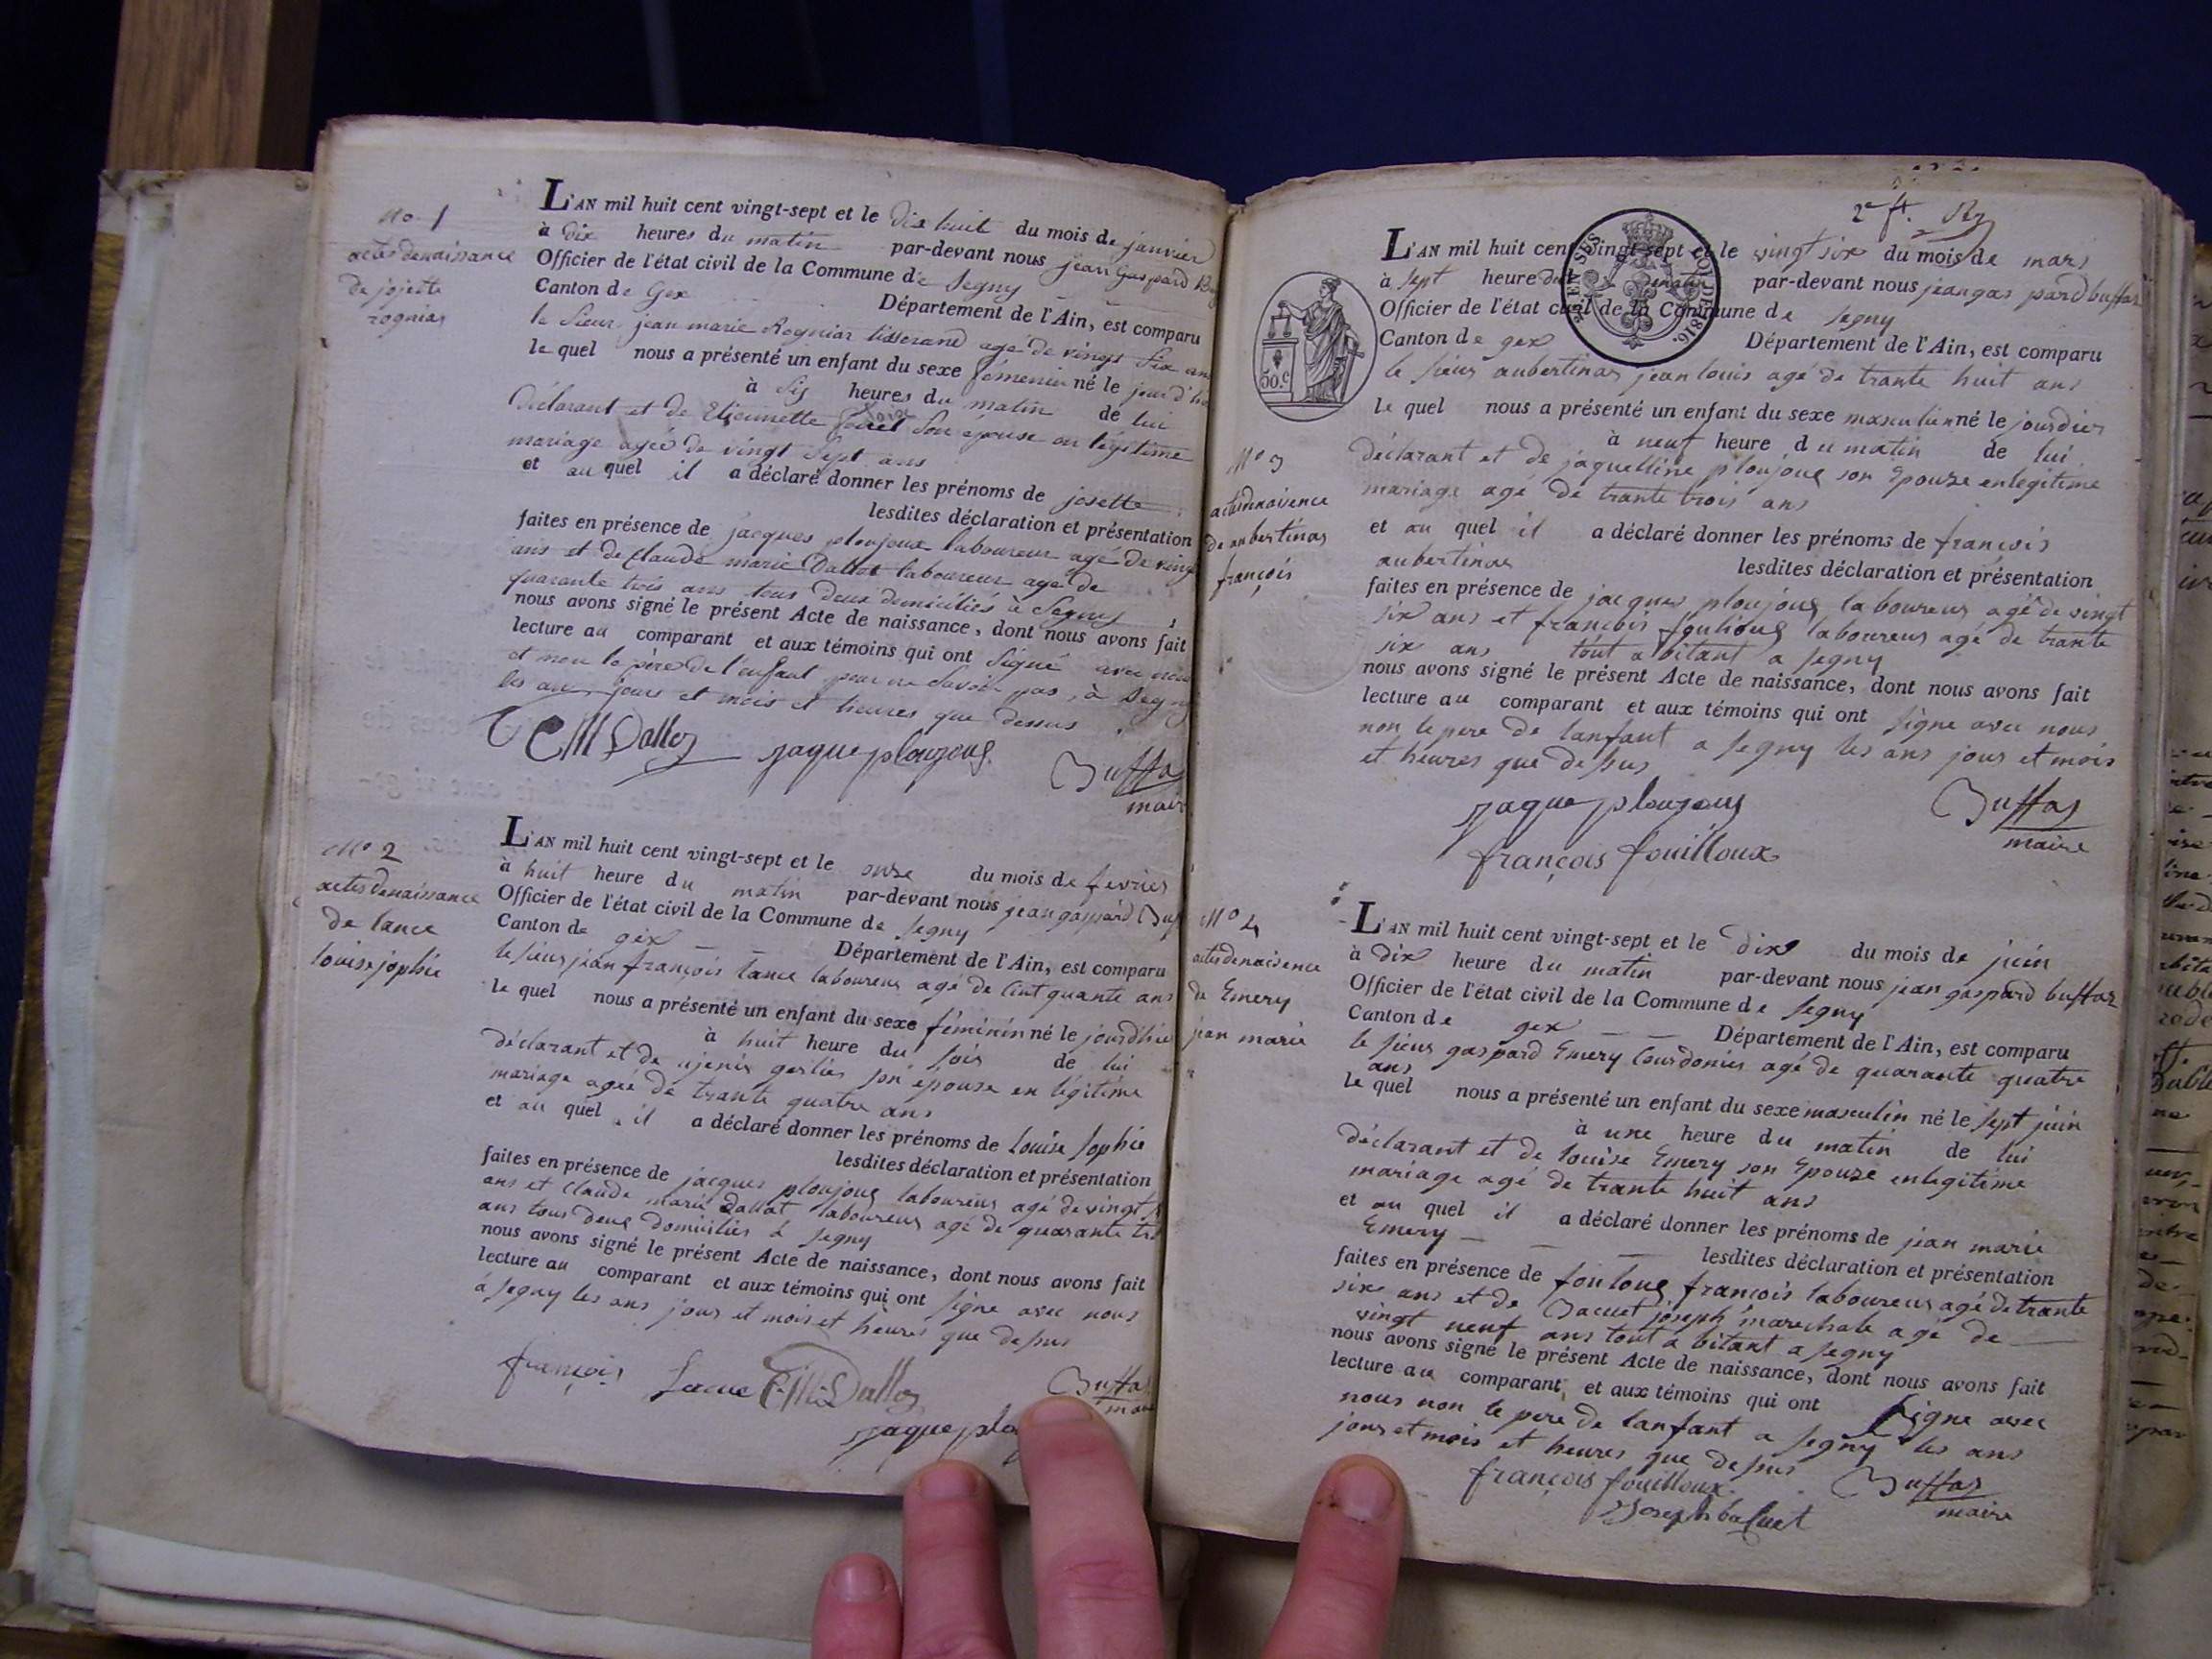 No 1
actes denaissance
de josette
rogniar
L'AN mil huit cent vingt-sept et le dix huit du mois de janvier
à dix heures du matin par-devant nous jean Gaspard
Officier de l'état civil de la Commune de Segny
Canton de Gex Département de l'Ain, est comparu
le Sieur jean marie Rogniar tisserand age de vingt six ans
le quel nous a présenté un enfant du sexe femenin né le jour d'hui
à six heures du matin de lui
déclarant et de Etiennette son epouse en légitime
mariage agée de vingt sept ans
et au quel il a déclaré donner les prénoms de josette
lesdites déclaration et présentation
faites en présence de jacques ploujoux laboureur agé de vingt
ans et de Claude marie Dallot laboureur age de
quarante trois ans tous deux domiciliés à Segny
nous avons signé le présent Acte de naissance, dont nous avons fait
lecture au comparant et aux témoins qui ont signé avec nous
et non le père de l'enfant pour ne savoir pas, à Segny
les an jours et mois et heures que dessus
CM Dalloz jaque ploujous Buffaz
maire
No 2
actes denaissance
de lance
louise sophie
L'AN mil huit cent vingt-sept et le onze du mois de fevrier
à huit heure du matin par-devant nous jean gaspard Buf
Officier de l'état civil de la Commune de Segny
Canton de gex Département de l'Ain, est comparu
le sieur jean françois lance laboureur agé de cint quante ans
le quel nous a présenté un enfant du sexe féminin né le jourdhui
à huit heure du soir de lui
déclarant et de son épouse en légitime
mariage agée de trante quatre ans
et au quel il a déclaré donner les prénoms de Louise Sophie
lesdites déclaration et présentation
faites en présence de jacques ploujoux laboureur agé de vingt
ans et Claude marie Dallat laboureur agé de quarante
ans tous deux domiciliés à segny
nous avons signé le présent Acte de naissance, dont nous avons fait
lecture au comparant et aux témoins qui ont signe avec nous
à segny les ans jour et mois et heures que dessus
françois CM Dalloz Buffaz
maire
jaque plo
2e ft.
L'AN mil huit cent vingt-sept et le vingt six du mois de mars
à sept heure du matin par-devant nous jean gaspard buffaz
Officier de l'état civil de la Commune de segny
Canton de gex Département de l'Ain, est comparu
50.c
1816
le sieur aubertinas jean louis agé de trante huit ans
le quel nous a présenté un enfant du sexe masculin né le jourdier
à neuf heure du matin de lui
déclarant et de jaquelline ploujoux son Epouze enlegitime
mariage agé de trante trois ans
et au quel il a déclaré donner les prénoms de francois
aubertinas lesdites déclaration et présentation
faites en présence de jacques ploujoux laboureur agé de vingt
six ans et francois laboureur agé de trante
six ans tout a bitant a segny
nous avons signé le présent Acte de naissance, dont nous avons fait
lecture au comparant et aux témoins qui ont signe avec nous
non le pere de lanfant a segny les ans jour et mois
et heures que dessus
jaque ploujous Buffaz
françois fouilloux maire
No 3
de aubertinas
françois
No 4
actes denaisence
de Emery
jean marie
L'AN mil huit cent vingt-sept et le dix du mois de juin
à dix heure du matin par-devant nous jean gaspard buffaz
Officier de l'état civil de la Commune de segny
Canton de gex Département de l'Ain, est comparu
le sieur gaspard Emery agé de quarante quatre
ans
le quel nous a présenté un enfant du sexe masculin né le sept juin
à une heure du matin de lui
déclarant et de louise Emery son Epouze enlegitime
mariage agé de trante huit ans
et au quel il a déclaré donner les prénoms de jean marie
Emery lesdites déclaration et présentation
faites en présence de francois laboureur agé de trante
six ans et de Bacuet joseph marechale agé de
vingt neuf ans tout a bitant a segny
nous avons signé le présent Acte de naissance, dont nous avons fait
lecture au comparant, et aux témoins qui ont signe avec
nous non le pere de lanfant a segny les ans
jour et mois et heures que dessus
françois fouilloux Buffaz
maire